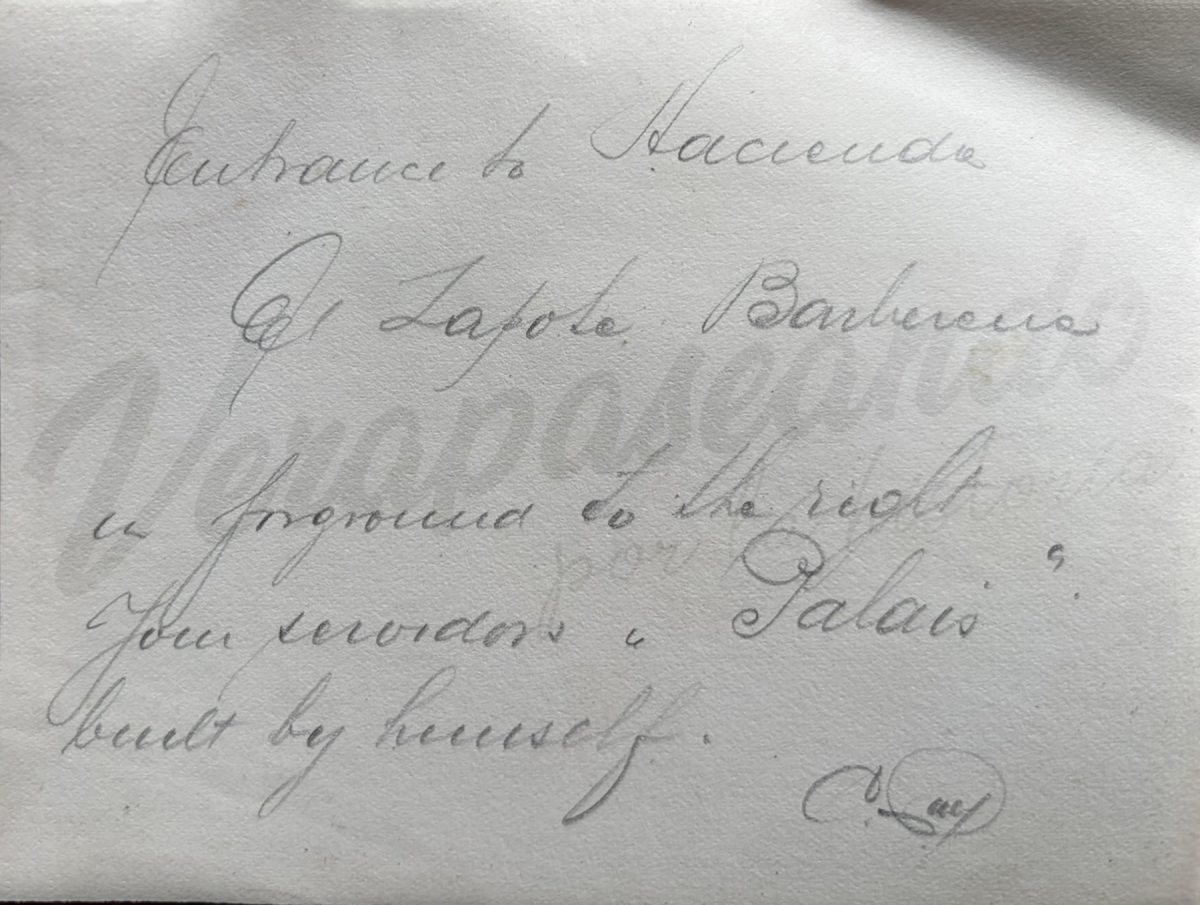 Entrance to Hacienda
El Zapote Barberena
in forground to the right
Your servidors " Palais "
built by himself.
C.
Verapaseando
por